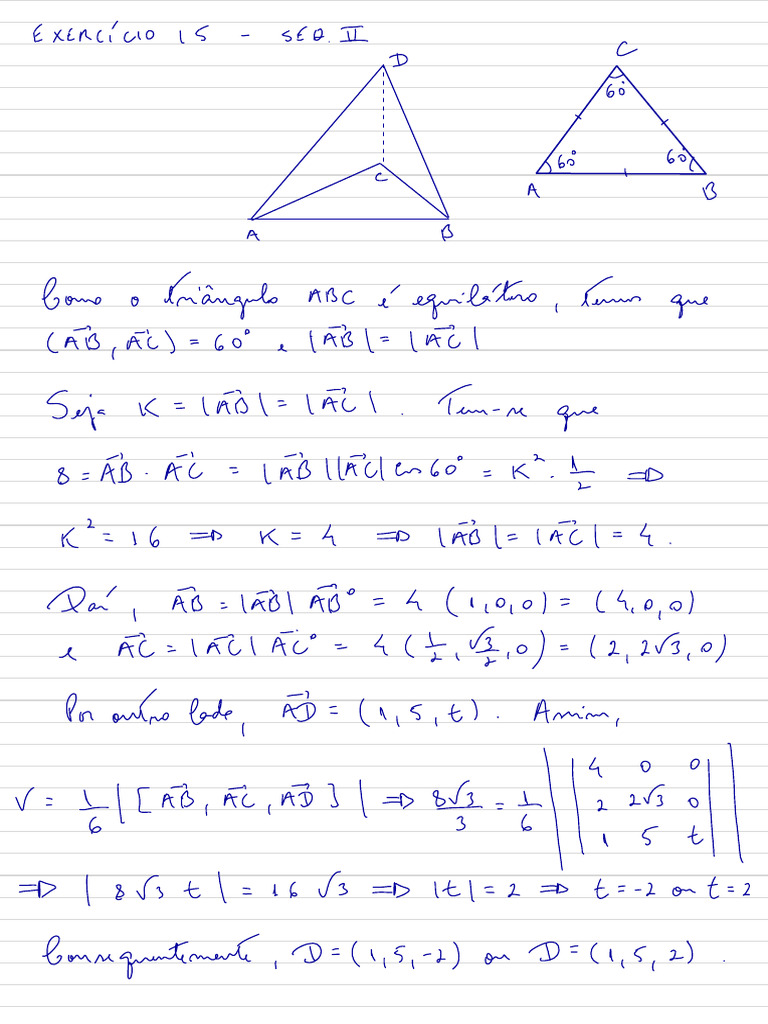 EXERCÍCIO 15 - SEQ. II
D
C
A
B
C
60°
60°
60°
A
B
Como o triângulo ABC é equilátero, temos que
(AB⃗, AC⃗) = 60° e |AB⃗| = |AC⃗|
Seja K = |AB⃗| = |AC⃗|. Tem-se que
8 = AB⃗ · AC⃗ = |AB⃗||AC⃗| cos 60° = K² · 1/2 ⇒
K² = 16 ⇒ K = 4 ⇒ |AB⃗| = |AC⃗| = 4.
Daí, AB⃗ = |AB⃗| AB⃗° = 4 (1,0,0) = (4,0,0)
e AC⃗ = |AC⃗| AC⃗° = 4 (1/2, √3/2, 0) = (2, 2√3, 0)
Por outro lado, AD⃗ = (1, 5, t). Assim,
V = 1/6 |[AB⃗, AC⃗, AD⃗]| ⇒ 8√3/3 = 1/6 | |4 0 0
2 2√3 0
1 5 t| |
⇒ |8√3 t| = 16√3 ⇒ |t| = 2 ⇒ t = -2 ou t = 2
Consequentemente, D = (1, 5, -2) ou D = (1, 5, 2).